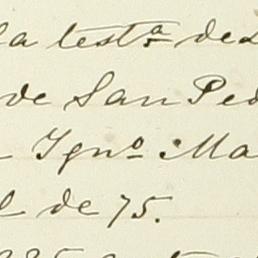 la testª de
de San Ped
Ygnº Ma
l de 75.